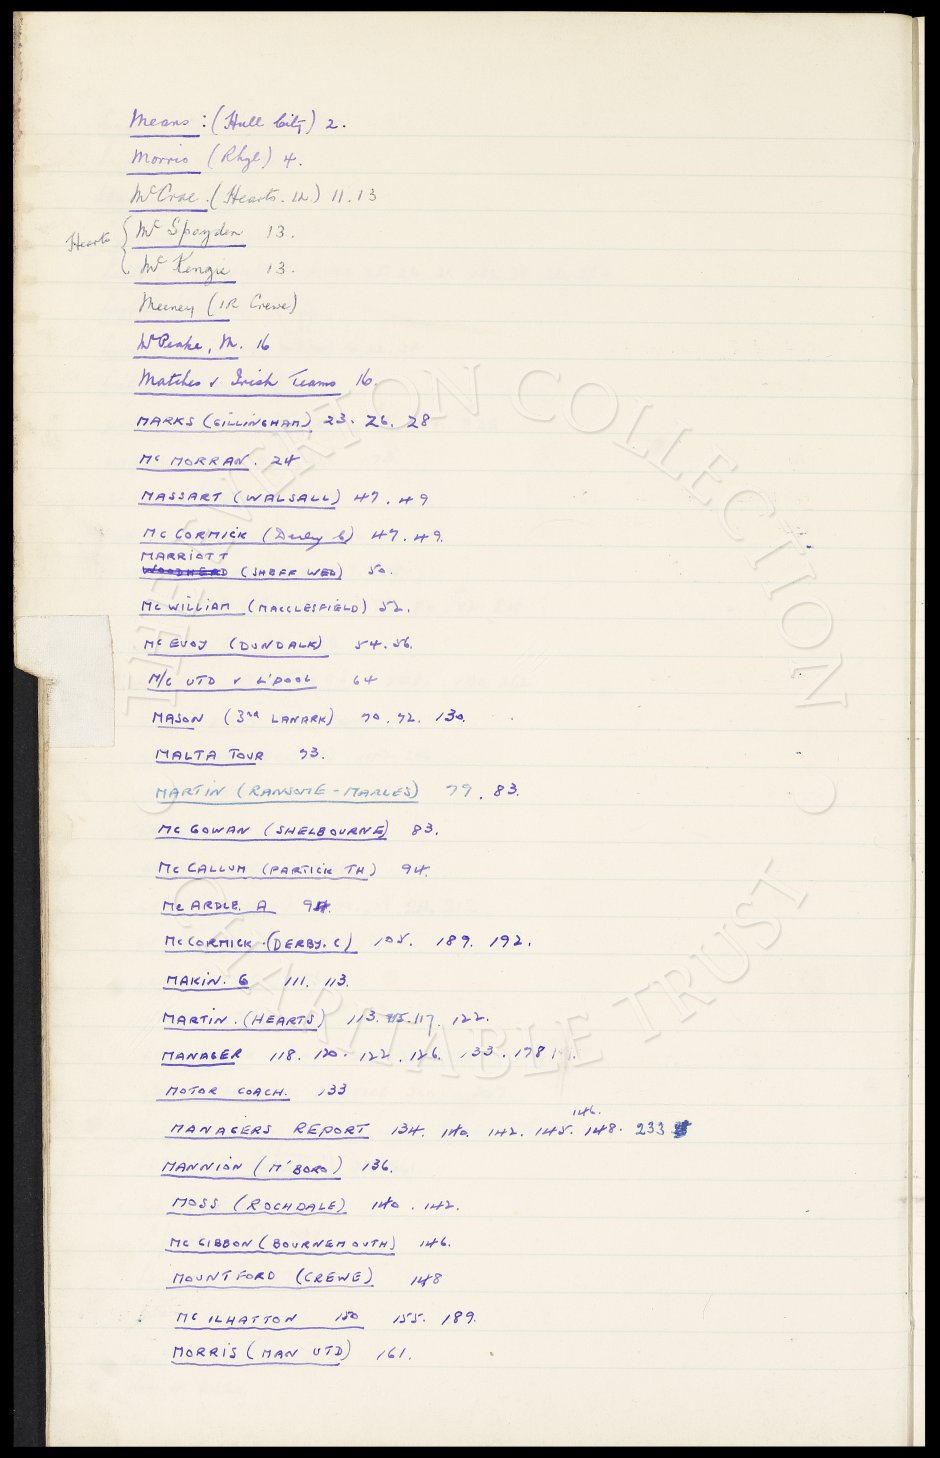 Means : (Hull City) 2.
Morris (Rhyl) 4.
McCrae. (Hearts. IL) 11. 13
Hearts { Mc Spayden 13.
Mc Kengie 13.
Meeney (IR Crewe)
McPeake, M. 16
Matches v Irish Teams 16.
MARKS (GILLINGHAM) 23. 26. 28
Mc MORRAN. 24
MASSART (WALSALL) 47. 49
Mc CORMICK (Derby C) 47. 49.
MARRIOTT
WOODHEAD (SHEFF WED) 50.
Mc WILLIAM (MACCLESFIELD) 52.
Mc EVOY (DUNDALK) 54. 56.
M/C UTD v L'POOL 64
MASON (3rd LANARK) 70. 72. 130.
MALTA TOUR 73.
MARTIN (RANSOME - MARLES) 79. 83.
Mc GOWAN (SHELBOURNE) 83.
Mc CALLUM (PARTICK TH) 94.
Mc ARDLE. A 94.
Mc CORMICK. (DERBY. C) 105. 189. 192.
MAKIN. G 111. 113.
MARTIN. (HEARTS) 113. 115. 117. 122.
MANAGER 118. 120. 122. 126. 133. 178
MOTOR COACH. 133
146.
MANAGERS REPORT 134. 140. 142. 145. 148. 233
MANNION (M'BORO) 136.
MOSS (ROCHDALE) 140. 142.
Mc GIBBON (BOURNEMOUTH) 146.
MOUNTFORD (CREWE) 148
Mc ILHATTON 150 155. 189.
MORRIS (MAN UTD) 161.
THE EVERTON COLLECTION
CHARITABLE TRUST